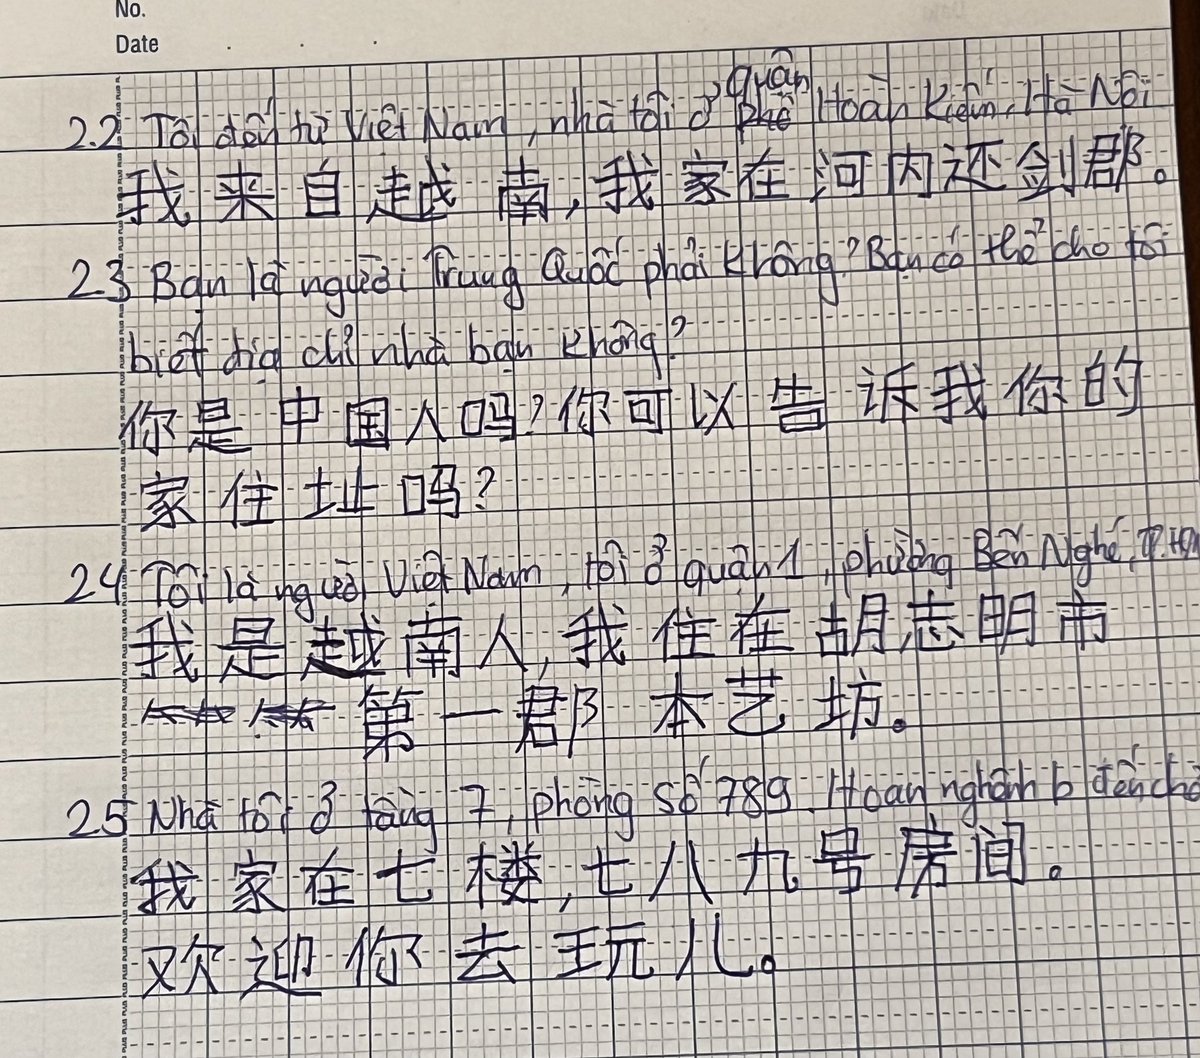 No.
Date
22 Tôi đến từ Việt Nam, nhà tôi ở quận Hoàn Kiếm, Hà Nội
我来自越南,我家在河内还剑郡。
23 Bạn là người Trung Quốc phải không? Bạn có thể cho tôi
biết địa chỉ nhà bạn không?
你是中国人吗?你可以告诉我你的
家住址吗?
24 Tôi là người Việt Nam, tôi ở quận 1, phường Bến Nghé,
我是越南人,我住在胡志明市
第一郡 本艺坊。
25 Nhà tôi ở tầng 7, phòng số 789. Hoan nghênh b đến
我家在七楼,七八九号房间。
欢迎你去玩儿。